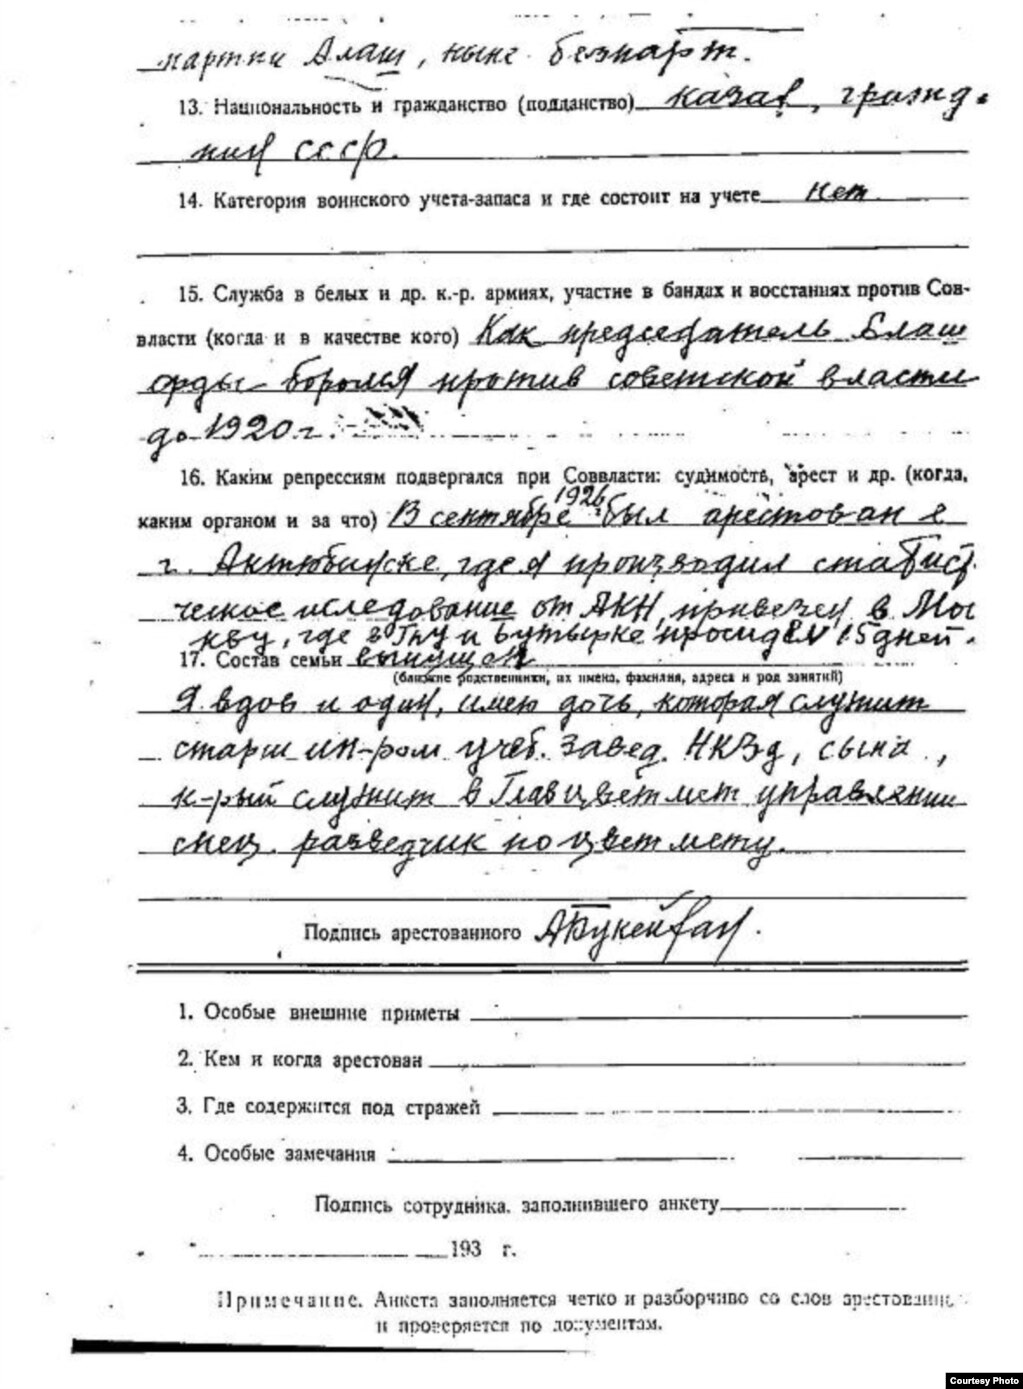 партии Алаш, ныне беспарт.
13. Национальность и гражданство (подданство) казак, гражд.
ния СССР.
14. Категория воинского учета-запаса и где состоит на учете нет
15. Служба в белых и др. к.-р. армиях, участие в бандах и восстаниях против Сов-
власти (когда и в качестве кого) Как председатель Алаш
орды боролся против советской власти
до 1920 г.
16. Каким репрессиям подвергался при Соввласти: судимость, арест и др. (когда,
каким органом и за что) В сентябре 1926 г. был арестован в
г. Актюбинске, где я производил статист
ческое иследование от АКН, привезен в Мос
кву, где в ГПУ и Бутырке просидел 15 дней.
17. Состав семьи выпущен
(ближние родственники, их имена, фамилия, адреса и род занятий)
Я вдов и один, имею дочь, которая служит
старш ин-ром учеб. завед. НКЗд, сына,
к-рый служит в Главцветмет управлении
спец. разведчик по цветмету.
Подпись арестованного АБукейхан.
1. Особые внешние приметы
2. Кем и когда арестован
3. Где содержится под стражей
4. Особые замечания
Подпись сотрудника, заполнившего анкету
193 г.
Примечание. Анкета заполняется четко и разборчиво со слов арестованно
и проверяется по документам.
Courtesy Photo